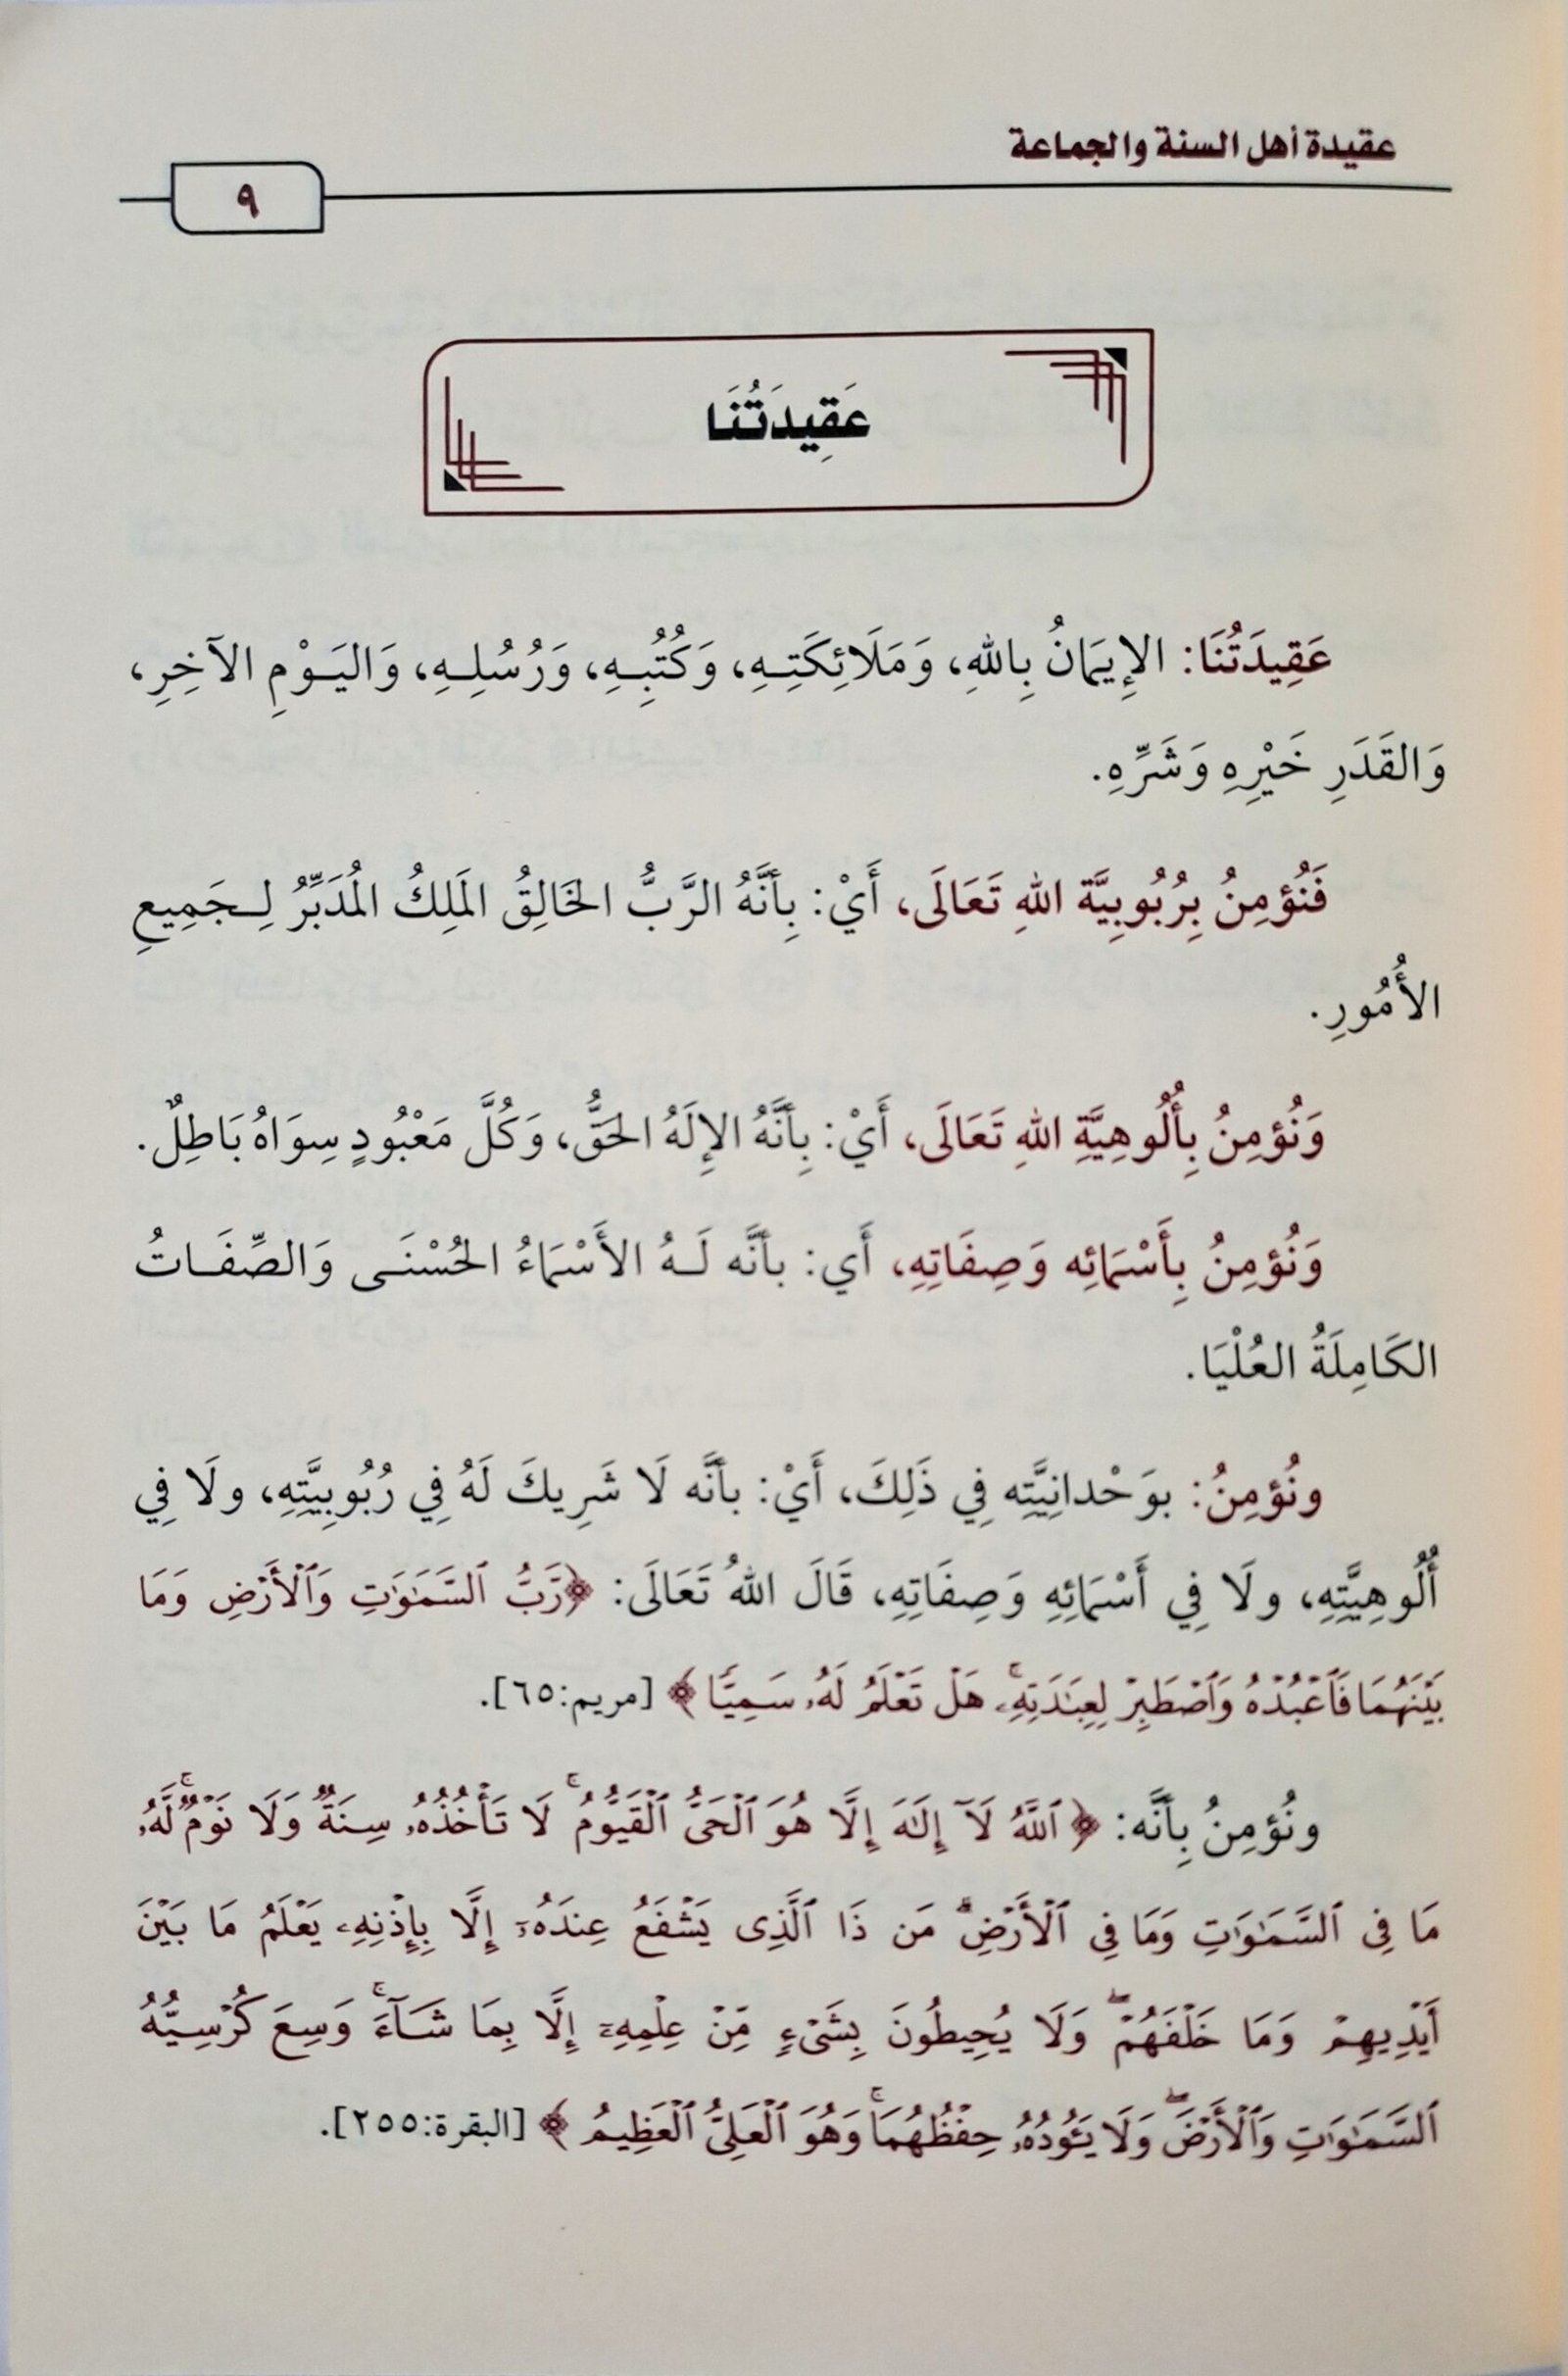 عقيدة أهل السنة والجماعة
٩
عَقِيدَتُنَا
عَقِيدَتُنَا: الإِيمَانُ بِاللهِ، وَمَلَائِكَتِهِ، وَكُتُبِهِ، وَرُسُلِهِ، وَاليَوْمِ الآخِرِ،
وَالقَدَرِ خَيْرِهِ وَشَرِّهِ.
فَنُؤمِنُ بِرُبُوبِيَّة اللهِ تَعَالَى، أَيْ: بِأَنَّهُ الرَّبُّ الخَالِقُ المَلِكُ المُدَبِّرُ لِجَمِيعِ
الأُمُورِ.
وَنُؤمِنُ بِأُلُوهِيَّةِ اللهِ تَعَالَى، أَيْ: بِأَنَّهُ الإِلَهُ الحَقُّ، وَكُلَّ مَعْبُودٍ سِوَاهُ بَاطِلٌ.
وَنُؤمِنُ بِأَسْمَائِه وَصِفَاتِهِ، أَي: بأنَّه لَهُ الأَسْمَاءُ الحُسْنَى وَالصِّفَاتُ
الكَامِلَةُ العُلْيَا.
ونُؤمِنُ: بوَحْدانِيَّتِه فِي ذَلِكَ، أَيْ: بأنَّه لَا شَرِيكَ لَهُ فِي رُبُوبِيَّتِهِ، ولَا فِي
أُلُوهِيَّتِهِ، ولَا فِي أَسْمَائِهِ وَصِفَاتِهِ، قَالَ اللهُ تَعَالَى: ﴿رَّبُّ ٱلسَّمَٰوَٰتِ وَٱلْأَرْضِ وَمَا
بَيْنَهُمَا فَٱعْبُدْهُ وَٱصْطَبِرْ لِعِبَٰدَتِهِۦۚ هَلْ تَعْلَمُ لَهُۥ سَمِيًّا ﴾ [مريم:٦٥].
ونُؤمِنُ بِأَنَّه: ﴿ ٱللَّهُ لَآ إِلَٰهَ إِلَّا هُوَ ٱلْحَىُّ ٱلْقَيُّومُۚ لَا تَأْخُذُهُۥ سِنَةٌ وَلَا نَوْمٌۚ لَّهُۥ
مَا فِى ٱلسَّمَٰوَٰتِ وَمَا فِى ٱلْأَرْضِۗ مَن ذَا ٱلَّذِى يَشْفَعُ عِندَهُۥٓ إِلَّا بِإِذْنِهِۦ يَعْلَمُ مَا بَيْنَ
أَيْدِيهِمْ وَمَا خَلْفَهُمْۖ وَلَا يُحِيطُونَ بِشَىْءٍ مِّنْ عِلْمِهِۦٓ إِلَّا بِمَا شَآءَۚ وَسِعَ كُرْسِيُّهُ
ٱلسَّمَٰوَٰتِ وَٱلْأَرْضَۖ وَلَا يَـُٔودُهُۥ حِفْظُهُمَاۚ وَهُوَ ٱلْعَلِىُّ ٱلْعَظِيمُ ﴾ [البقرة:٢٥٥].